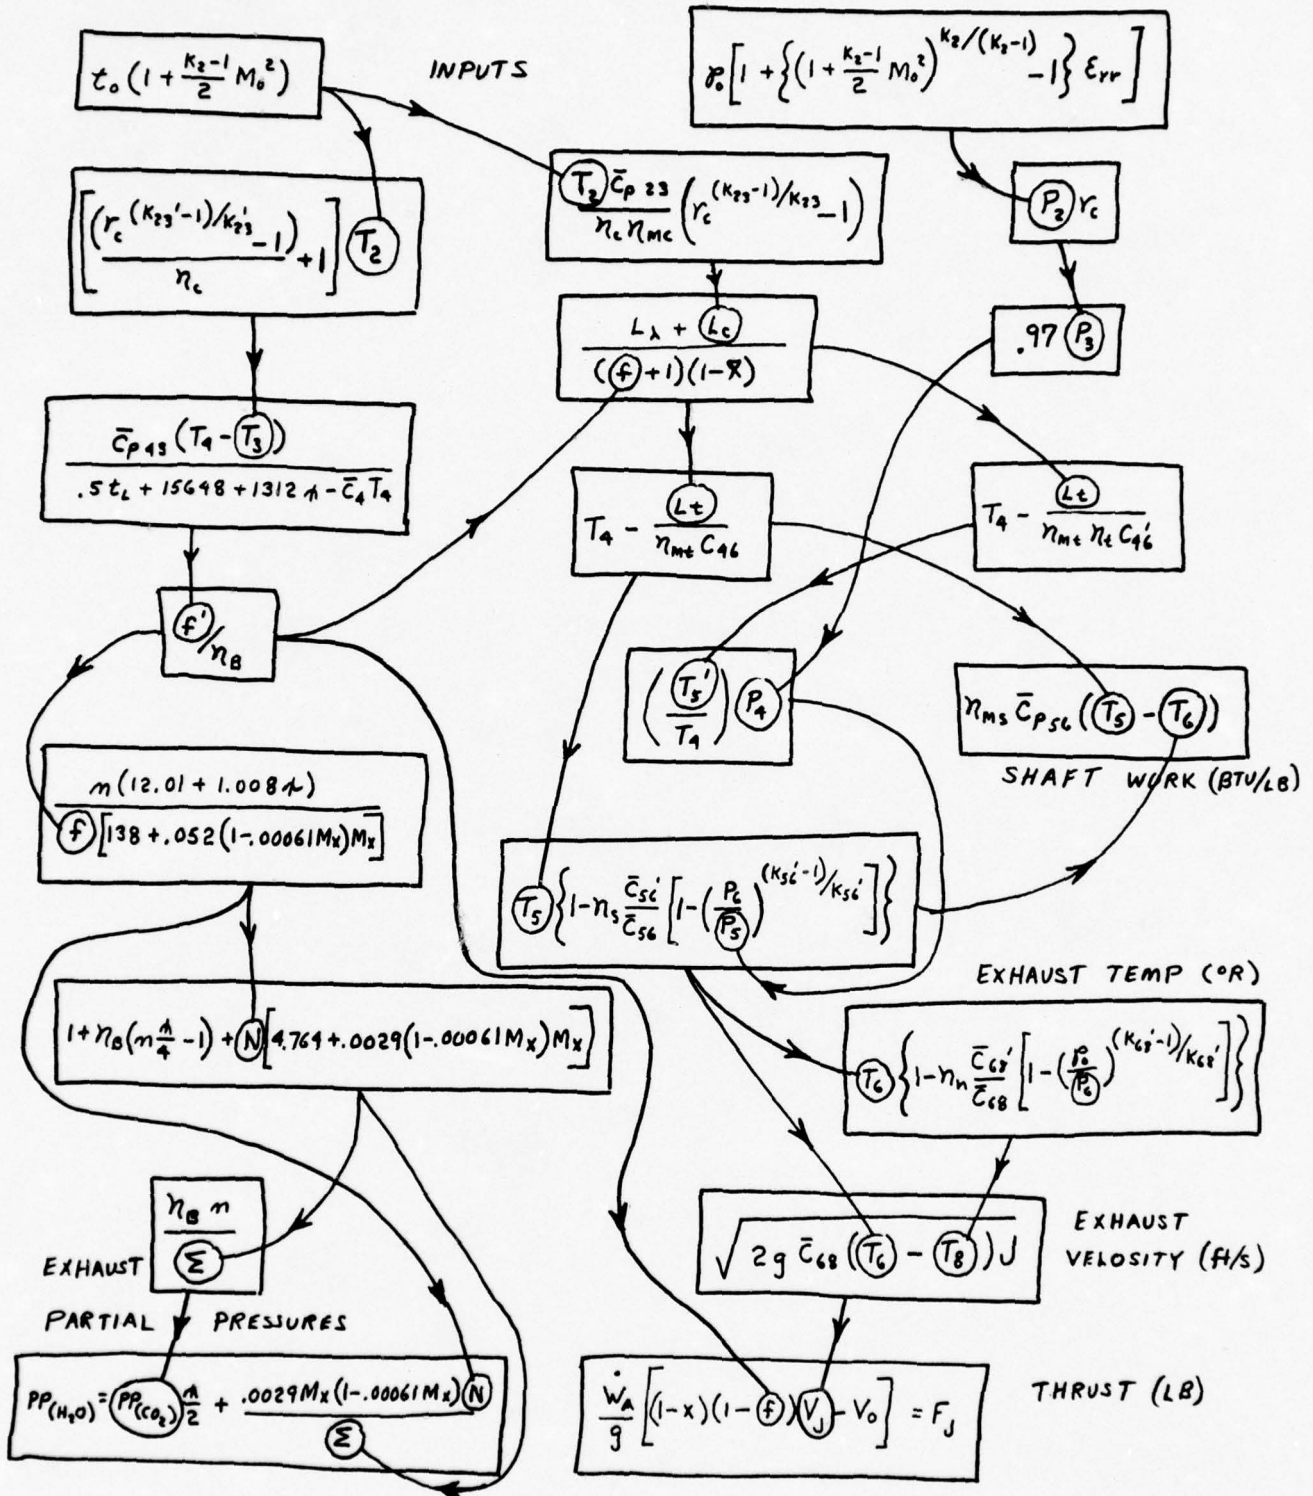 t₀(1 + (K₂-1)/2 M₀²)
INPUTS
p₀[1 + {(1 + (K₂-1)/2 M₀²)^(K₂/(K₂-1) -1} εrr]
[((r_c^((K₂₃'-1)/K₂₃') -1)/η_c) + 1] T₂
(T₂ C̄p₂₃)/(η_c η_mc) (r_c^((K₂₃-1)/K₂₃) -1)
P₂ r_c
(L_λ + L_c)/((f+1)(1-x))
.97 P₃
C̄p₄₃(T₄-T₃)
.5t_L + 15648 + 1312 r - C̄₄T₄
T₄ - Lt/(η_mt C₄₆)
T₄ - Lt/(η_mt η_t C₄₆')
f'/η_B
(T₅'/T₄) P₄
η_ms C̄p₅₆((T₅ - T₆))
SHAFT WORK (BTU/LB)
n(12.01 + 1.008r)
f[138 + .052(1-.00061Mx)Mx]
T₅{1-η_s C̄₅₆'/C̄₅₆ [1-(P₆/P₅)^((K₅₆'-1)/K₅₆')]}
EXHAUST TEMP (°R)
1 + η_B(n r/4 -1) + N[4.764+.0029(1-.00061Mx)Mx]
T₆{1-η_n C̄₆₈'/C̄₆₈ [1-(p₀/P₆)^((K₆₈'-1)/K₆₈')]}
η_B n
Σ
√2g C̄₆₈((T₆ - T₈))J
EXHAUST
VELOSITY (ft/s)
EXHAUST
PARTIAL PRESSURES
PP(H₂O) = PP(CO₂) r/2 + .0029Mx(1-.00061Mx)N
Σ
Ẇ_A/g [(1-x)(1-f)V_J - V₀] = F_J
THRUST (LB)